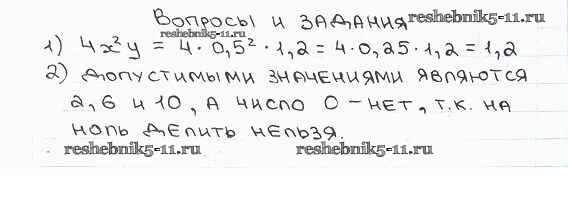 Вопросы и задания reshebnik5-11.ru
reshebnik5-11.ru
1) 4x²y = 4·0,5²·1,2 = 4·0,25·1,2 = 1,2
2) допустимыми значениями являются
2, 6 и 10, а число 0 – нет, т.к. на
ноль делить нельзя.
reshebnik5-11.ru reshebnik5-11.ru